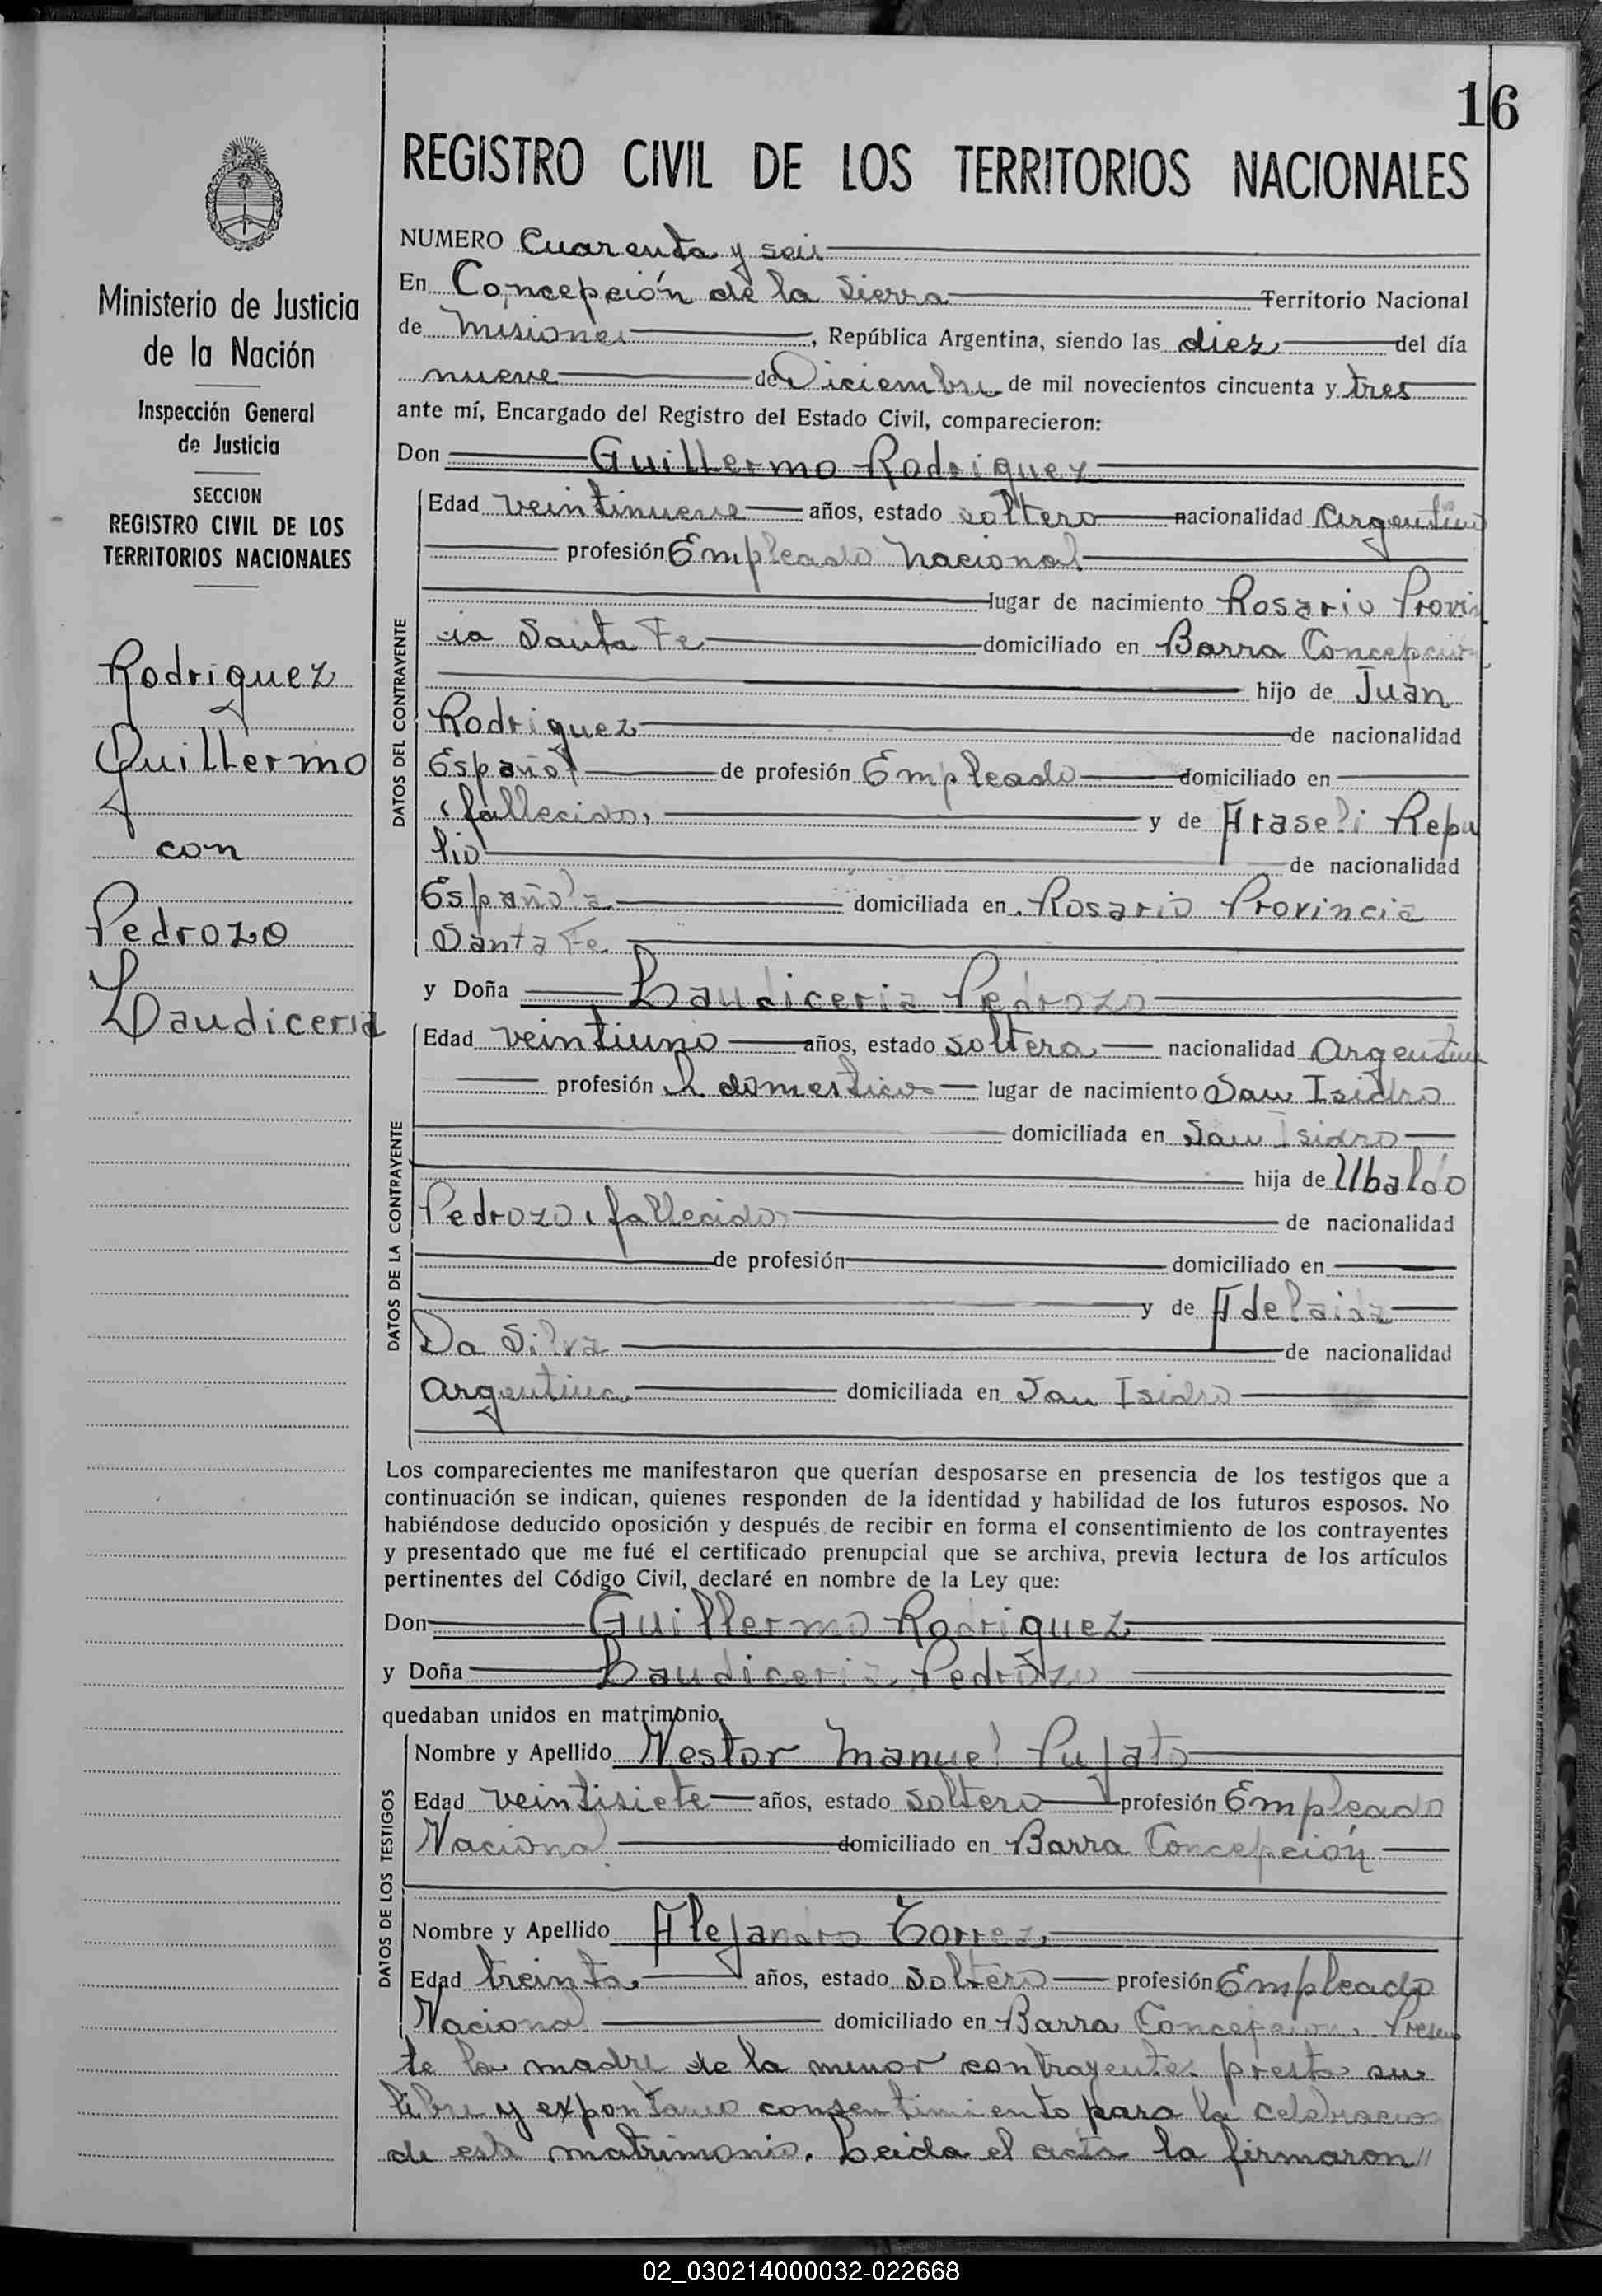 16
REGISTRO CIVIL DE LOS TERRITORIOS NACIONALES
Ministerio de Justicia
de la Nación
Inspección General
de Justicia
SECCION
REGISTRO CIVIL DE LOS
TERRITORIOS NACIONALES
Rodriguez
Guillermo
con
Pedrozo
Laudiceria
NUMERO Cuarenta y seis
En Concepción de la Sierra Territorio Nacional
de Misiones, República Argentina, siendo las diez del día
nueve de Diciembre de mil novecientos cincuenta y tres
ante mí, Encargado del Registro del Estado Civil, comparecieron:
Don Guillermo Rodriguez
DATOS DEL CONTRAYENTE
Edad veintinueve años, estado soltero nacionalidad Argentino
profesión Empleado Nacional
lugar de nacimiento Rosario Provin
cia Santa Fe domiciliado en Barra Concepción
hijo de Juan
Rodriguez de nacionalidad
Español de profesión Empleado domiciliado en
(fallecido) y de Araseli Repu
lio de nacionalidad
Española domiciliada en Rosario Provincia
Santa Fe
y Doña Laudiceria Pedrozo
DATOS DE LA CONTRAYENTE
Edad veintiuno años, estado soltera nacionalidad Argentina
profesión Q. domesticos lugar de nacimiento San Isidro
domiciliada en San Isidro
hija de Ubaldo
Pedrozo (fallecido) de nacionalidad
de profesión domiciliado en
y de Adelaida
Da Silva de nacionalidad
Argentina domiciliada en San Isidro
Los comparecientes me manifestaron que querían desposarse en presencia de los testigos que a
continuación se indican, quienes responden de la identidad y habilidad de los futuros esposos. No
habiéndose deducido oposición y después de recibir en forma el consentimiento de los contrayentes
y presentado que me fué el certificado prenupcial que se archiva, previa lectura de los artículos
pertinentes del Código Civil, declaré en nombre de la Ley que:
Don Guillermo Rodriguez
y Doña Laudiceria Pedrozo
quedaban unidos en matrimonio.
DATOS DE LOS TESTIGOS
Nombre y Apellido Nestor Manuel Pujato
Edad veintisiete años, estado soltero profesión Empleado
Nacional domiciliado en Barra Concepción
Nombre y Apellido Alejandro Torrez
Edad treinta años, estado soltero profesión Empleado
Nacional domiciliado en Barra Concepcion. Presen
te la madre de la menor contrayente. presta su
libre y expontaneo consentimiento para la celebracion
de este matrimonio. Leida el acta la firmaron //
02_030214000032-022668